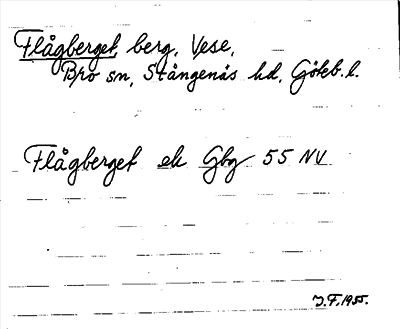 Flågberget, berg, Vese,
Bro sn, Stångenäs hd, Göteb. l.
Flågberget ek Gbg 55 NV
J.F. 1955.